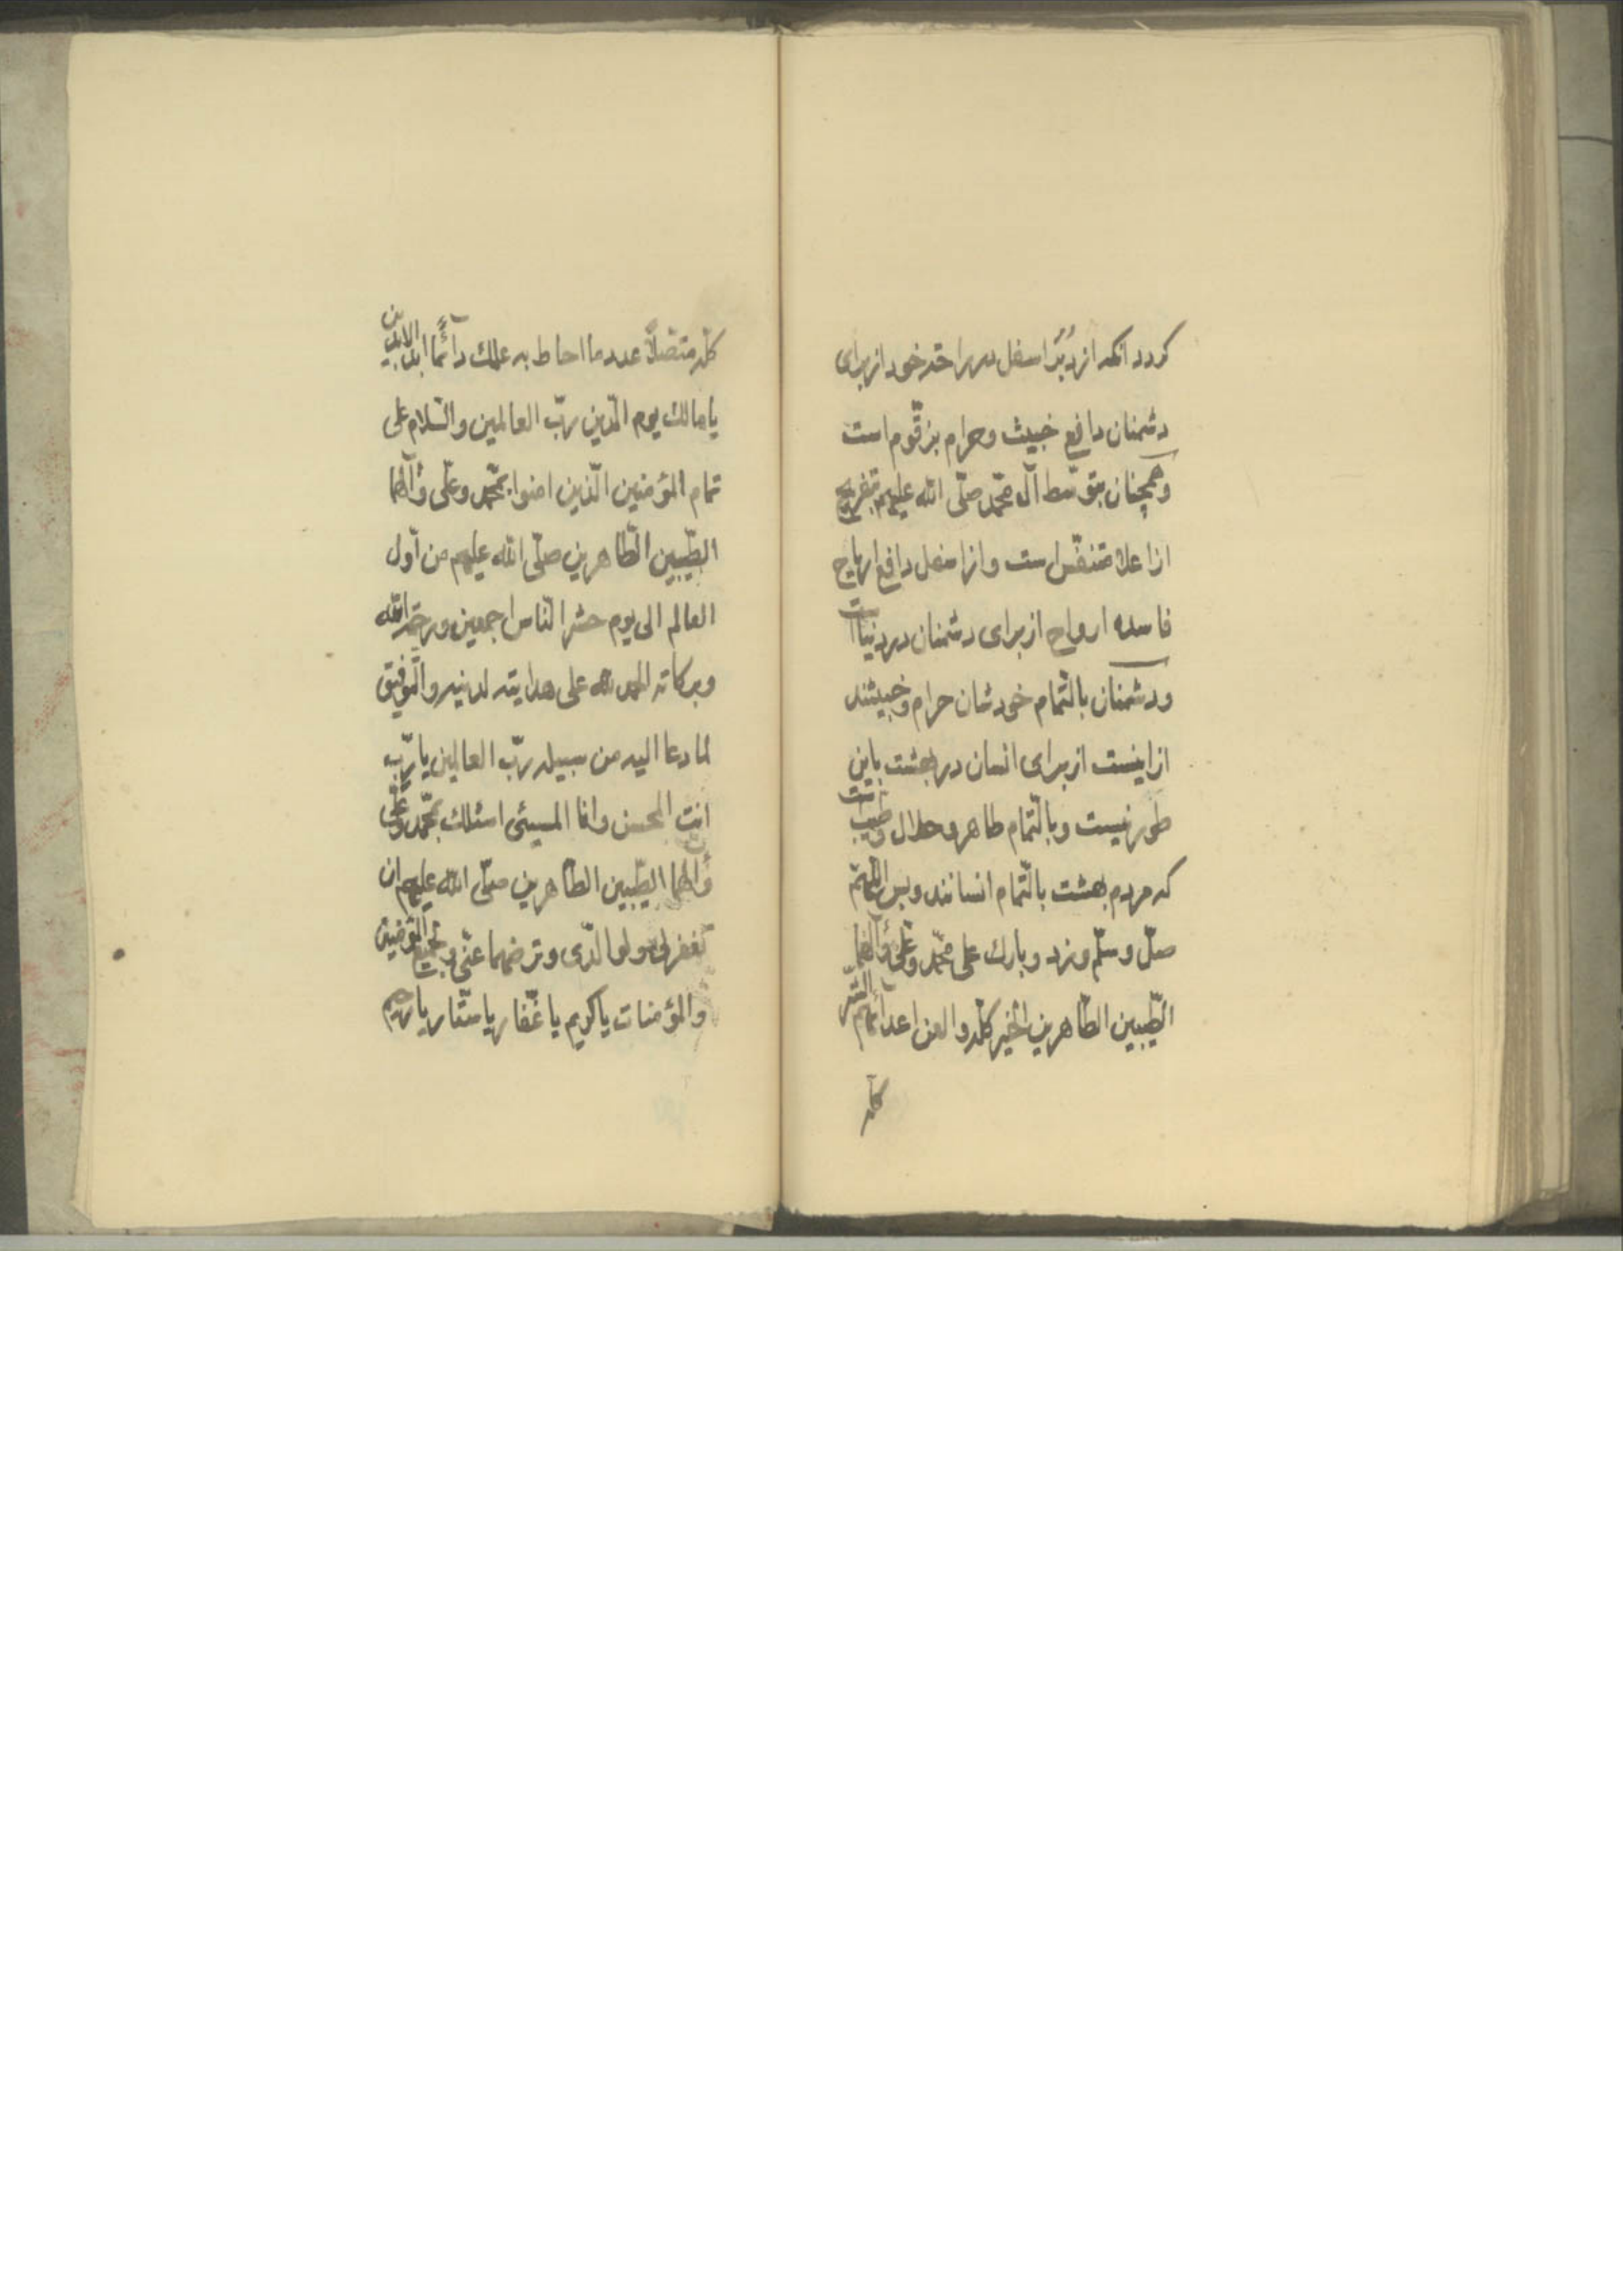 کردد انکه از دُبُر اسفل در راحة خود از برای
دشمنان دافع خبیث و حرام بزقّوم است
و همچنان بتوسّط آل محمّد صلّی الله علیهم بتفریح
از اعلا متنفّس است و از اسفل دافع اریاح
فاسده ارواح از برای دشمنان در دنیا است
و دشمنان بالتّمام خودشان حرام و خبیثند
از اینست از برای انسان در بهشت باین
طور نیست و بالتّمام طاهر و حلال و طیّب است
که مردم بهشت بالتّمام انسانند و بس اللّهمّ
صلّ وسلّم وزد وبارك علی محمّد وعلّی وآلهما
الطّیّبین الطّاهرین الخیر کلّه والعن اعدائهم الشّر
کلّه
کلّه متّصلاً عدد ما احاط به علمك دآئماً ابد الابدین
یا مالك یوم الدّین ربّ العالمین والسّلام علی
تمام المؤمنین الّذین امنوا بمحمّد وعلّی وآلهما
الطّیّبین الطّاهرین صلّی الله علیهم من اوّل
العالم الی یوم حشر النّاس اجمعین ورحمة الله
وبرکاته الحمد لله علی هدایته لدینه والتّوفیق
لما دعا الیه من سبیله ربّ العالمین یا ربّ
انت المحسن وانا المسیئ اسئلك بمحمّد وعلّی
وآلهما الطّیّبین الطّاهرین صلّی الله علیهم ان
تغفر لی ولوالدّی وترضهما عنّی وبجمیع المؤمنین
والمؤمنات یا کریم یا غفّار یا ستّار یا رحیم